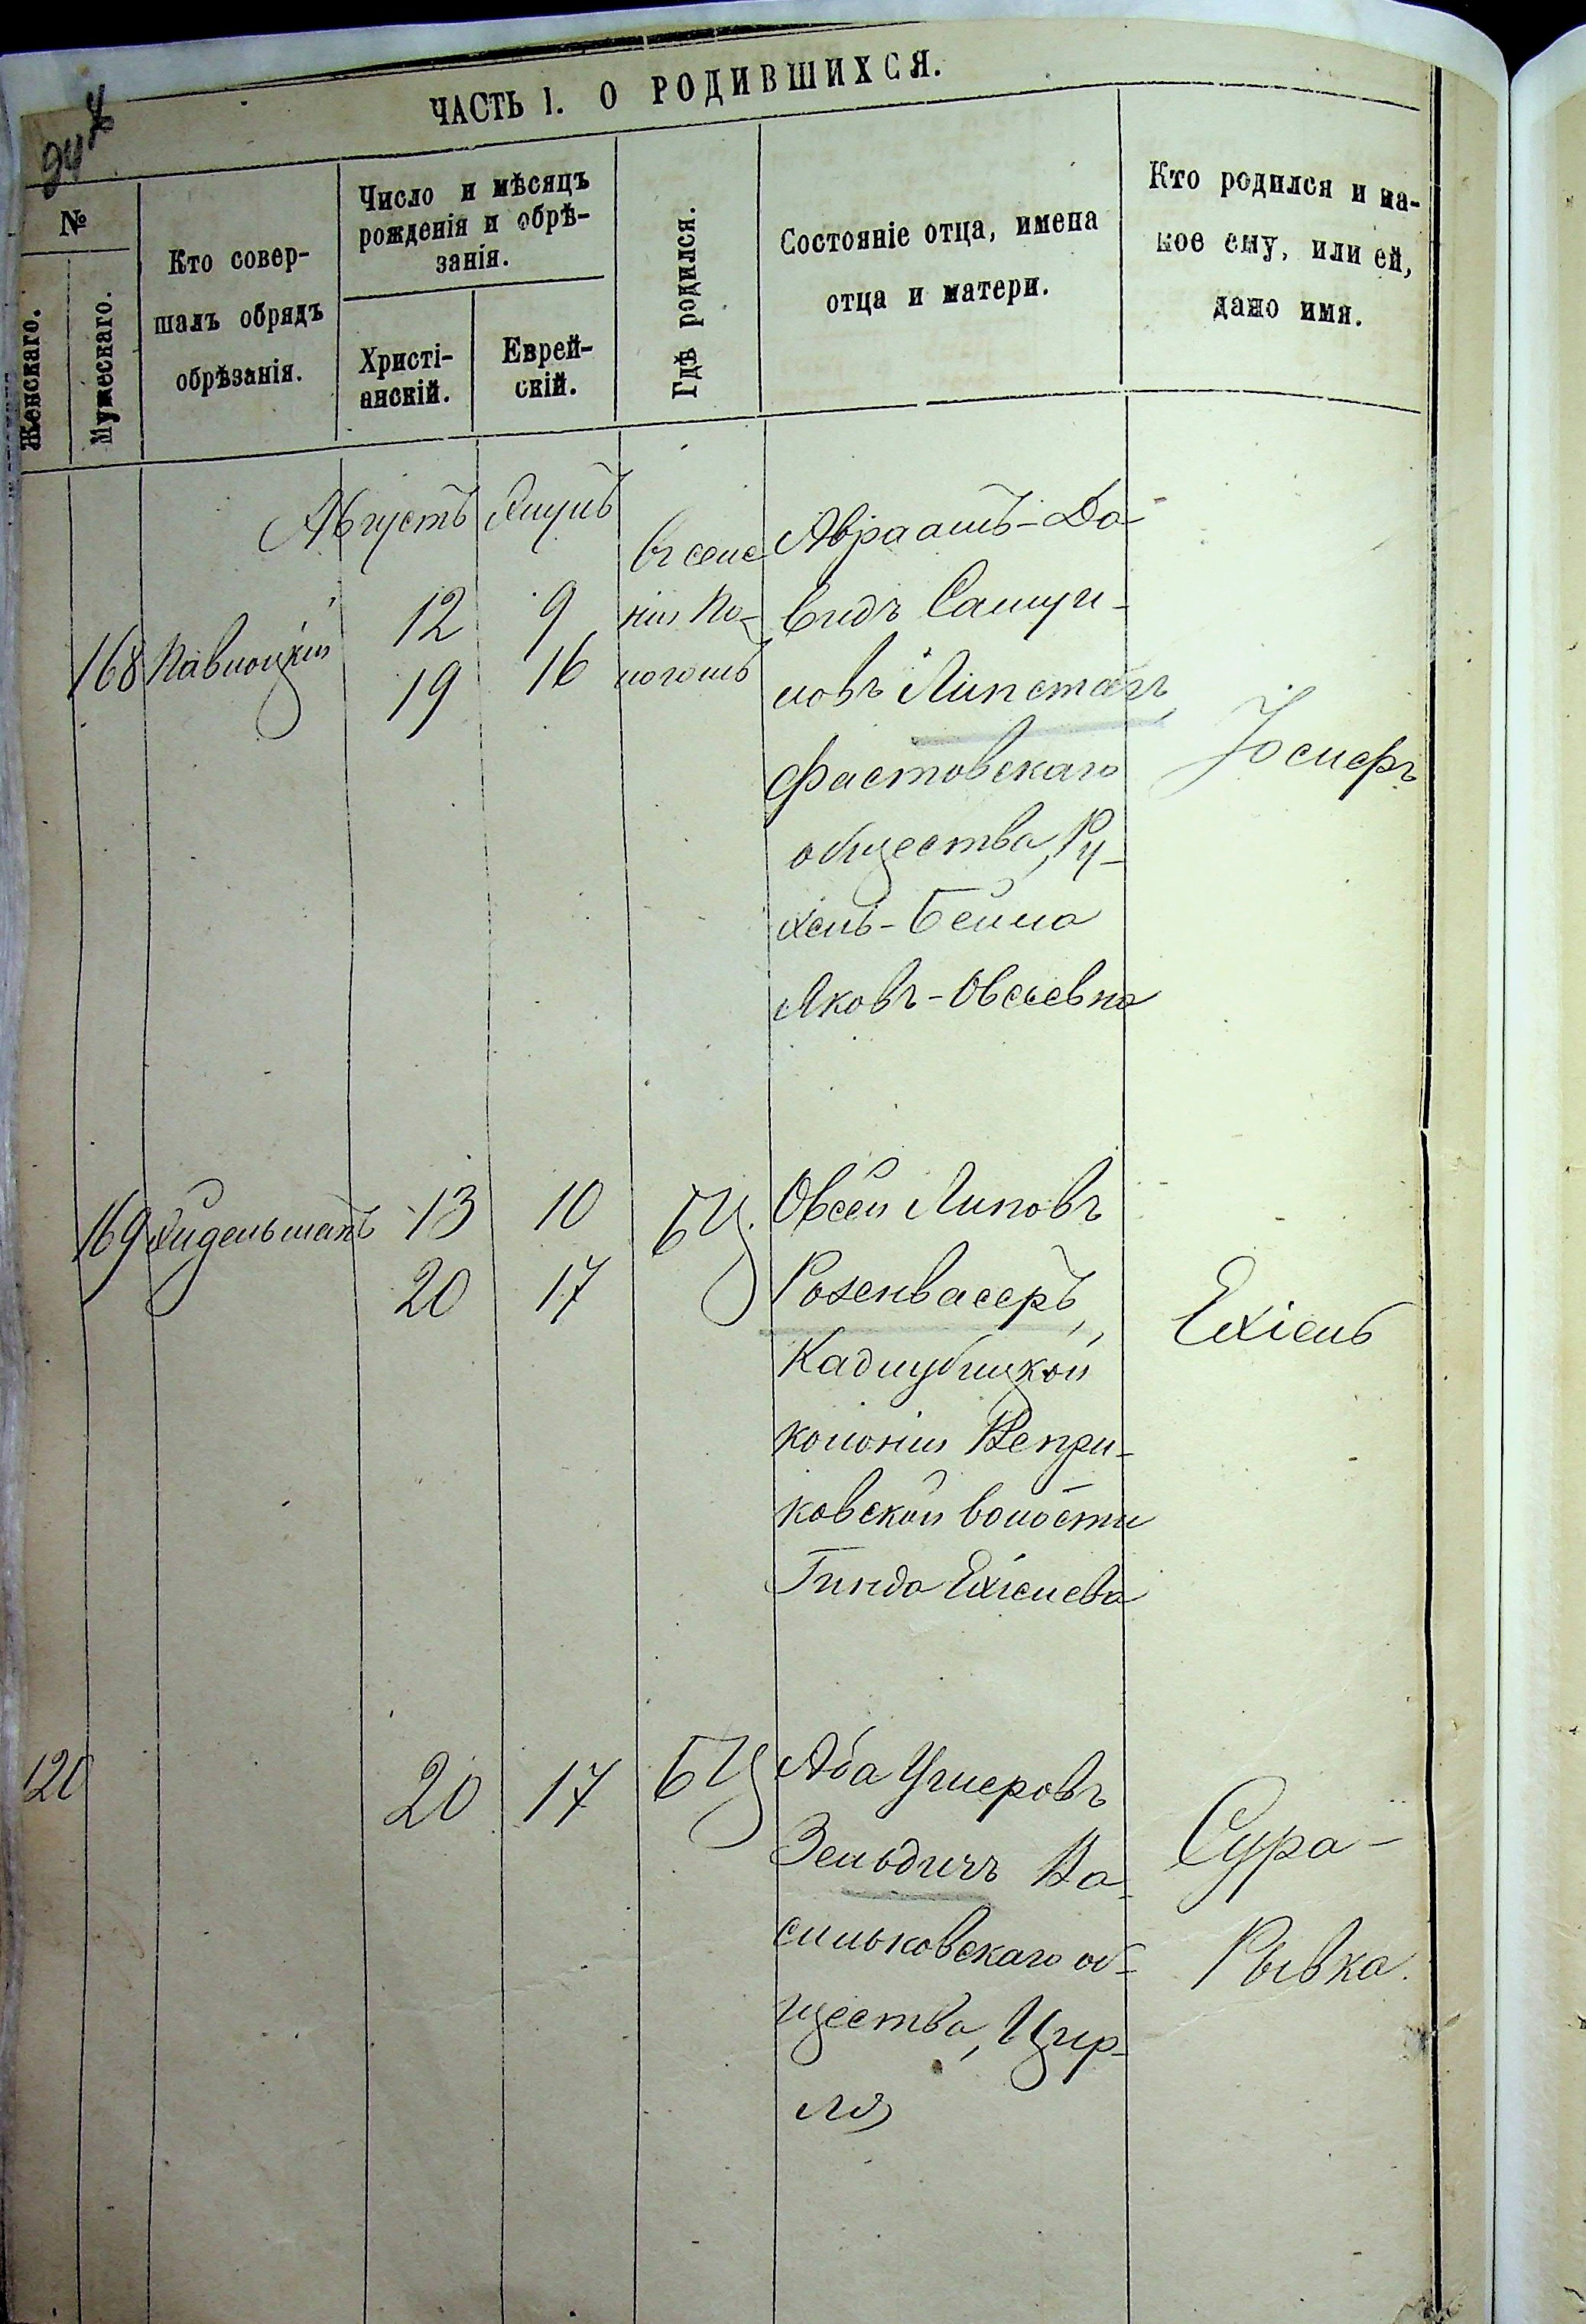 ЧАСТЬ I. О РОДИВШИХСЯ.
№
Женскаго.
Мужескаго.
Кто совер-
шалъ обрядъ
обрѣзанія.
Число и мѣсяцъ
рожденія и обрѣ-
занія.
Христі-
анскій.
Еврей-
скій.
Гдѣ родился.
Состояніе отца, имена
отца и матери.
Кто родился и ка-
кое ему, или ей,
дано имя.
Августъ Элулъ
168 Павлоцкій
12 9
19 16
въ селе
ніи По-
логомъ
Авраамъ-До-
видъ Самуи-
ловъ Липста
Фастовскаго
общества, Ру-
хель-Бейла
Яковъ-Овсѣевна
Іосифъ
169
13 10 БЦ
20 17
Овсѣй Липовъ
Розенвасеръ,
Кадлубицкой
колоніи Вепри-
ковской волости
Гинда Ехіелева
Ехіель
120 20 17 БЦ
Аба Ушеровъ
Зельдичъ Ва-
сильковскаго об-
щества, Цир-
ля
Сура-
Рывка.